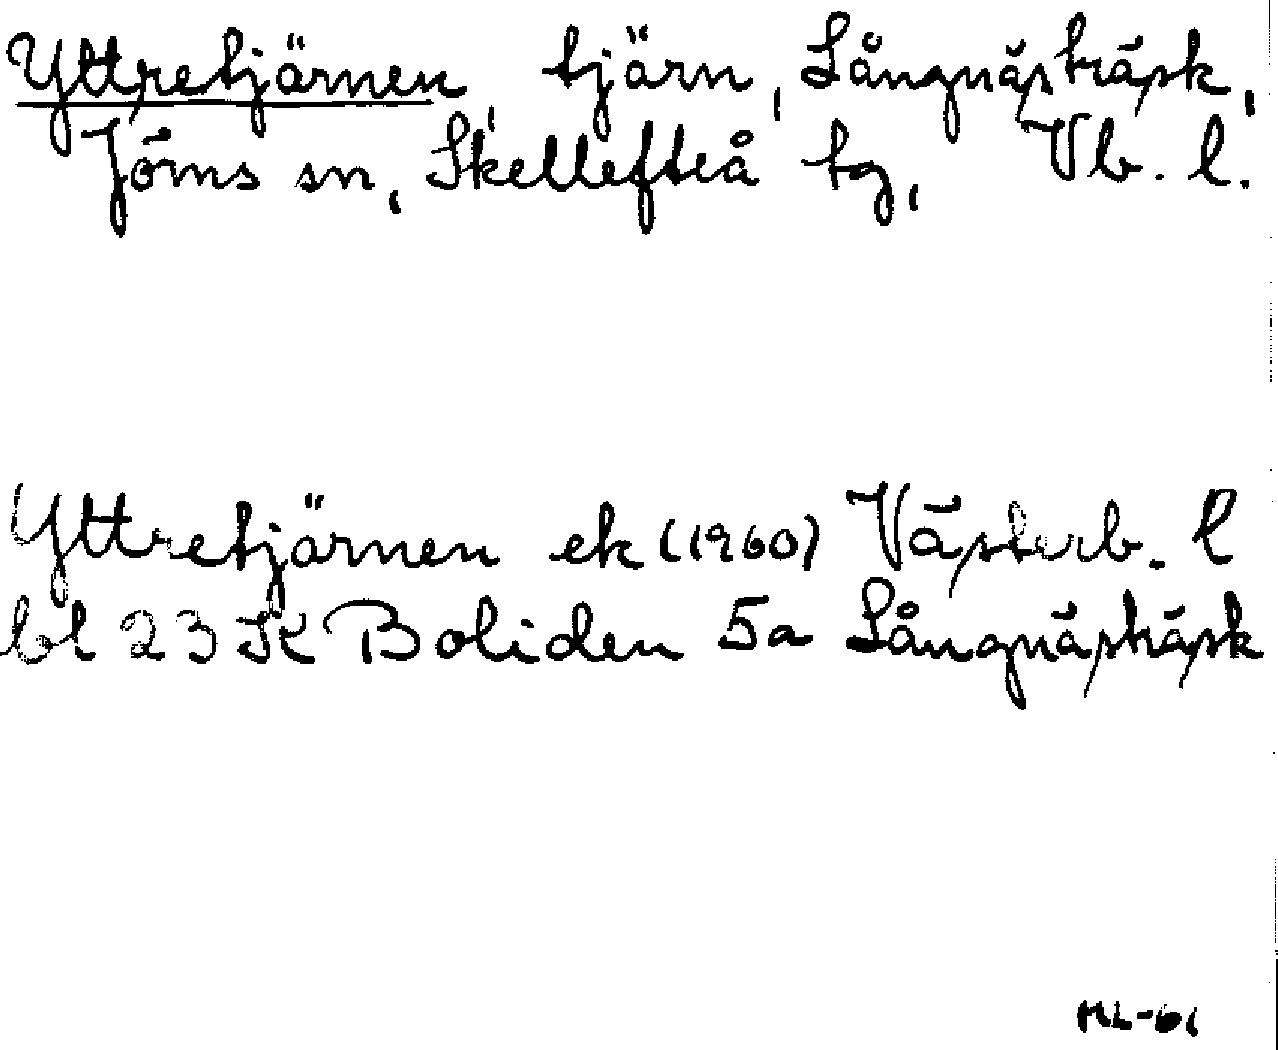 Yttretjärnen, tjärn, Långnästräsk,
Jörns sn, Skellefteå tg, Vb. l.
Yttretjärnen ek (1960) Västerb. l
bl 23 K Boliden 5a Långnästräsk
ML-61